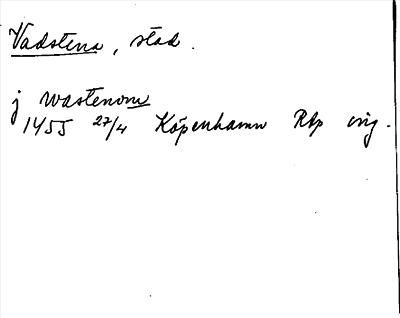 Vadstena, stad.
j wastenom
1455 27/4 Köpenhamn Rbp orig.